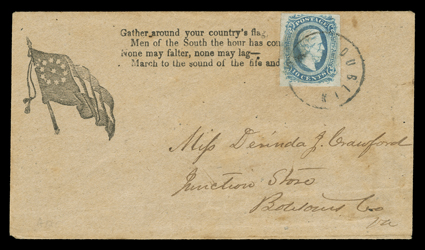 Gather around your country's flag,
Men of the South the hour has com
None may falter, none may lag—
March to the sound of the fife and
POSTAGE
CENTS
DUBLIN
Miss Derinda J. Crawford
Junction Store
Botetourt Co
Va